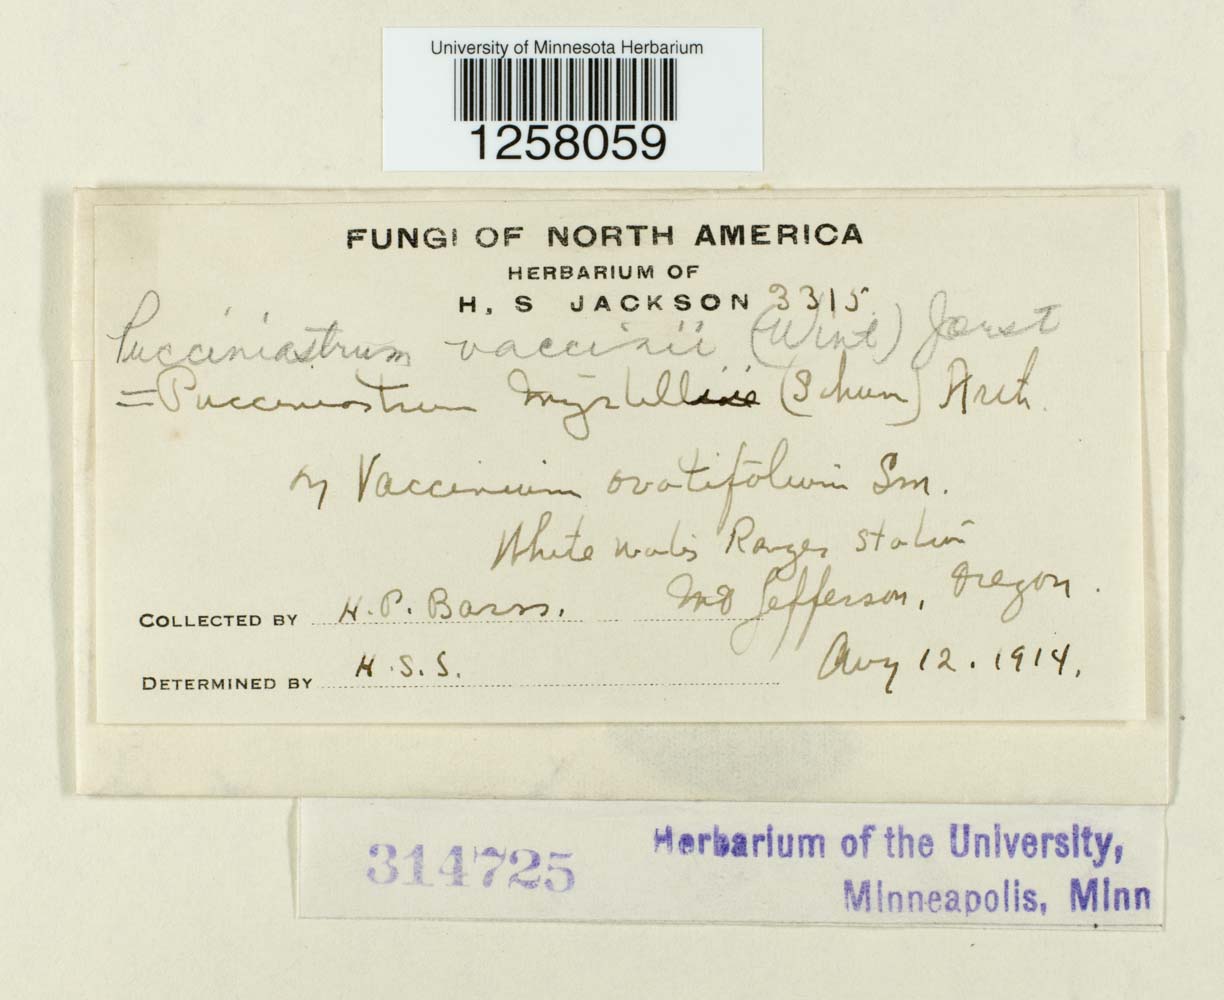 University of Minnesota Herbarium
1258059
FUNGI OF NORTH AMERICA
HERBARIUM OF
H. S JACKSON 3315
Pucciniastrum vaccinii (Wint) Joerst
= Pucciniastrum (Schum) Arth.
on Vaccinium ovatifolium Sm.
White water Ranger Station
Mt Jefferson, Oregon.
COLLECTED BY H. P. Barss.
Aug 12. 1914.
DETERMINED BY H.S.S.
314725
Herbarium of the University,
Minneapolis, Minn